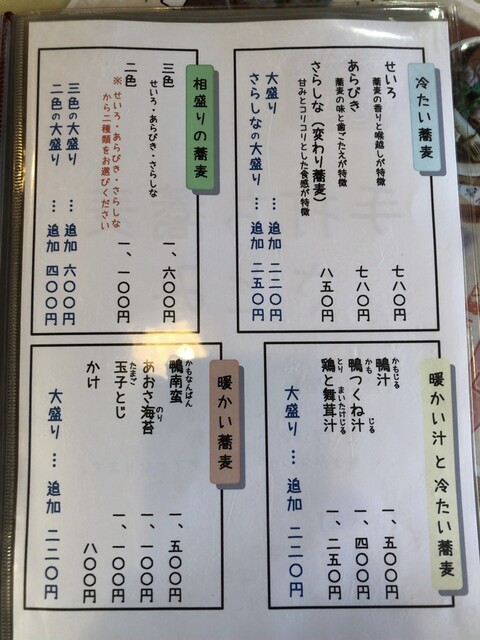 冷たい蕎麦
せいろ 七八〇円
蕎麦の香りと喉越しが特徴
あらびき 七八〇円
蕎麦の味と歯ごたえが特徴
さらしな（変わり蕎麦） 八五〇円
甘みとコリコリとした食感が特徴
大盛り … 追加 二二〇円
さらしなの大盛り … 追加 二五〇円
相盛りの蕎麦
三色 一、六〇〇円
せいろ・あらびき・さらしな
二色 一、一〇〇円
※せいろ・あらびき・さらしな
から二種類をお選びください
三色の大盛り … 追加 六〇〇円
二色の大盛り … 追加 四〇〇円
暖かい汁と冷たい蕎麦
鴨汁 一、五〇〇円
かもじる
鴨つくね汁 一、四〇〇円
かも じる
鶏と舞茸汁 一、二五〇円
とり まいたけじる
大盛り … 追加 二二〇円
暖かい蕎麦
鴨南蛮 一、五〇〇円
かもなんばん
あおさ海苔 一、一〇〇円
のり
玉子とじ 一、一〇〇円
たまご
かけ 八〇〇円
大盛り … 追加 二二〇円